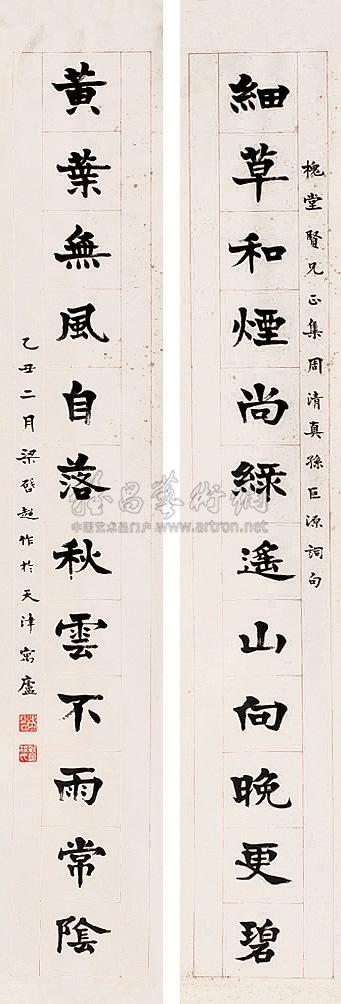 槐堂賢兄正集周清真孫巨源詞句
細草和煙尚綠遙山向晚更碧
黃葉無風自落秋雲不雨常陰
乙丑二月梁啓超作於天津寓廬
雅昌藝術網
中国艺术品门户-www.artron.net